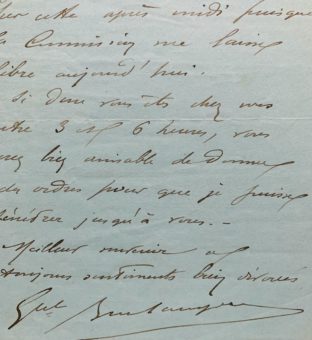 cette après midi puisque
la Commission me laisse
libre aujourd'hui.
si donc vous êtes chez vous
entre 3 et 6 heures, vous
serez bien aimable de donner
des ordres pour que je puisse
pénétrer jusqu'à vous. _
Meilleur souvenir et
toujours sentiments bien dévoués
Gal Boulanger